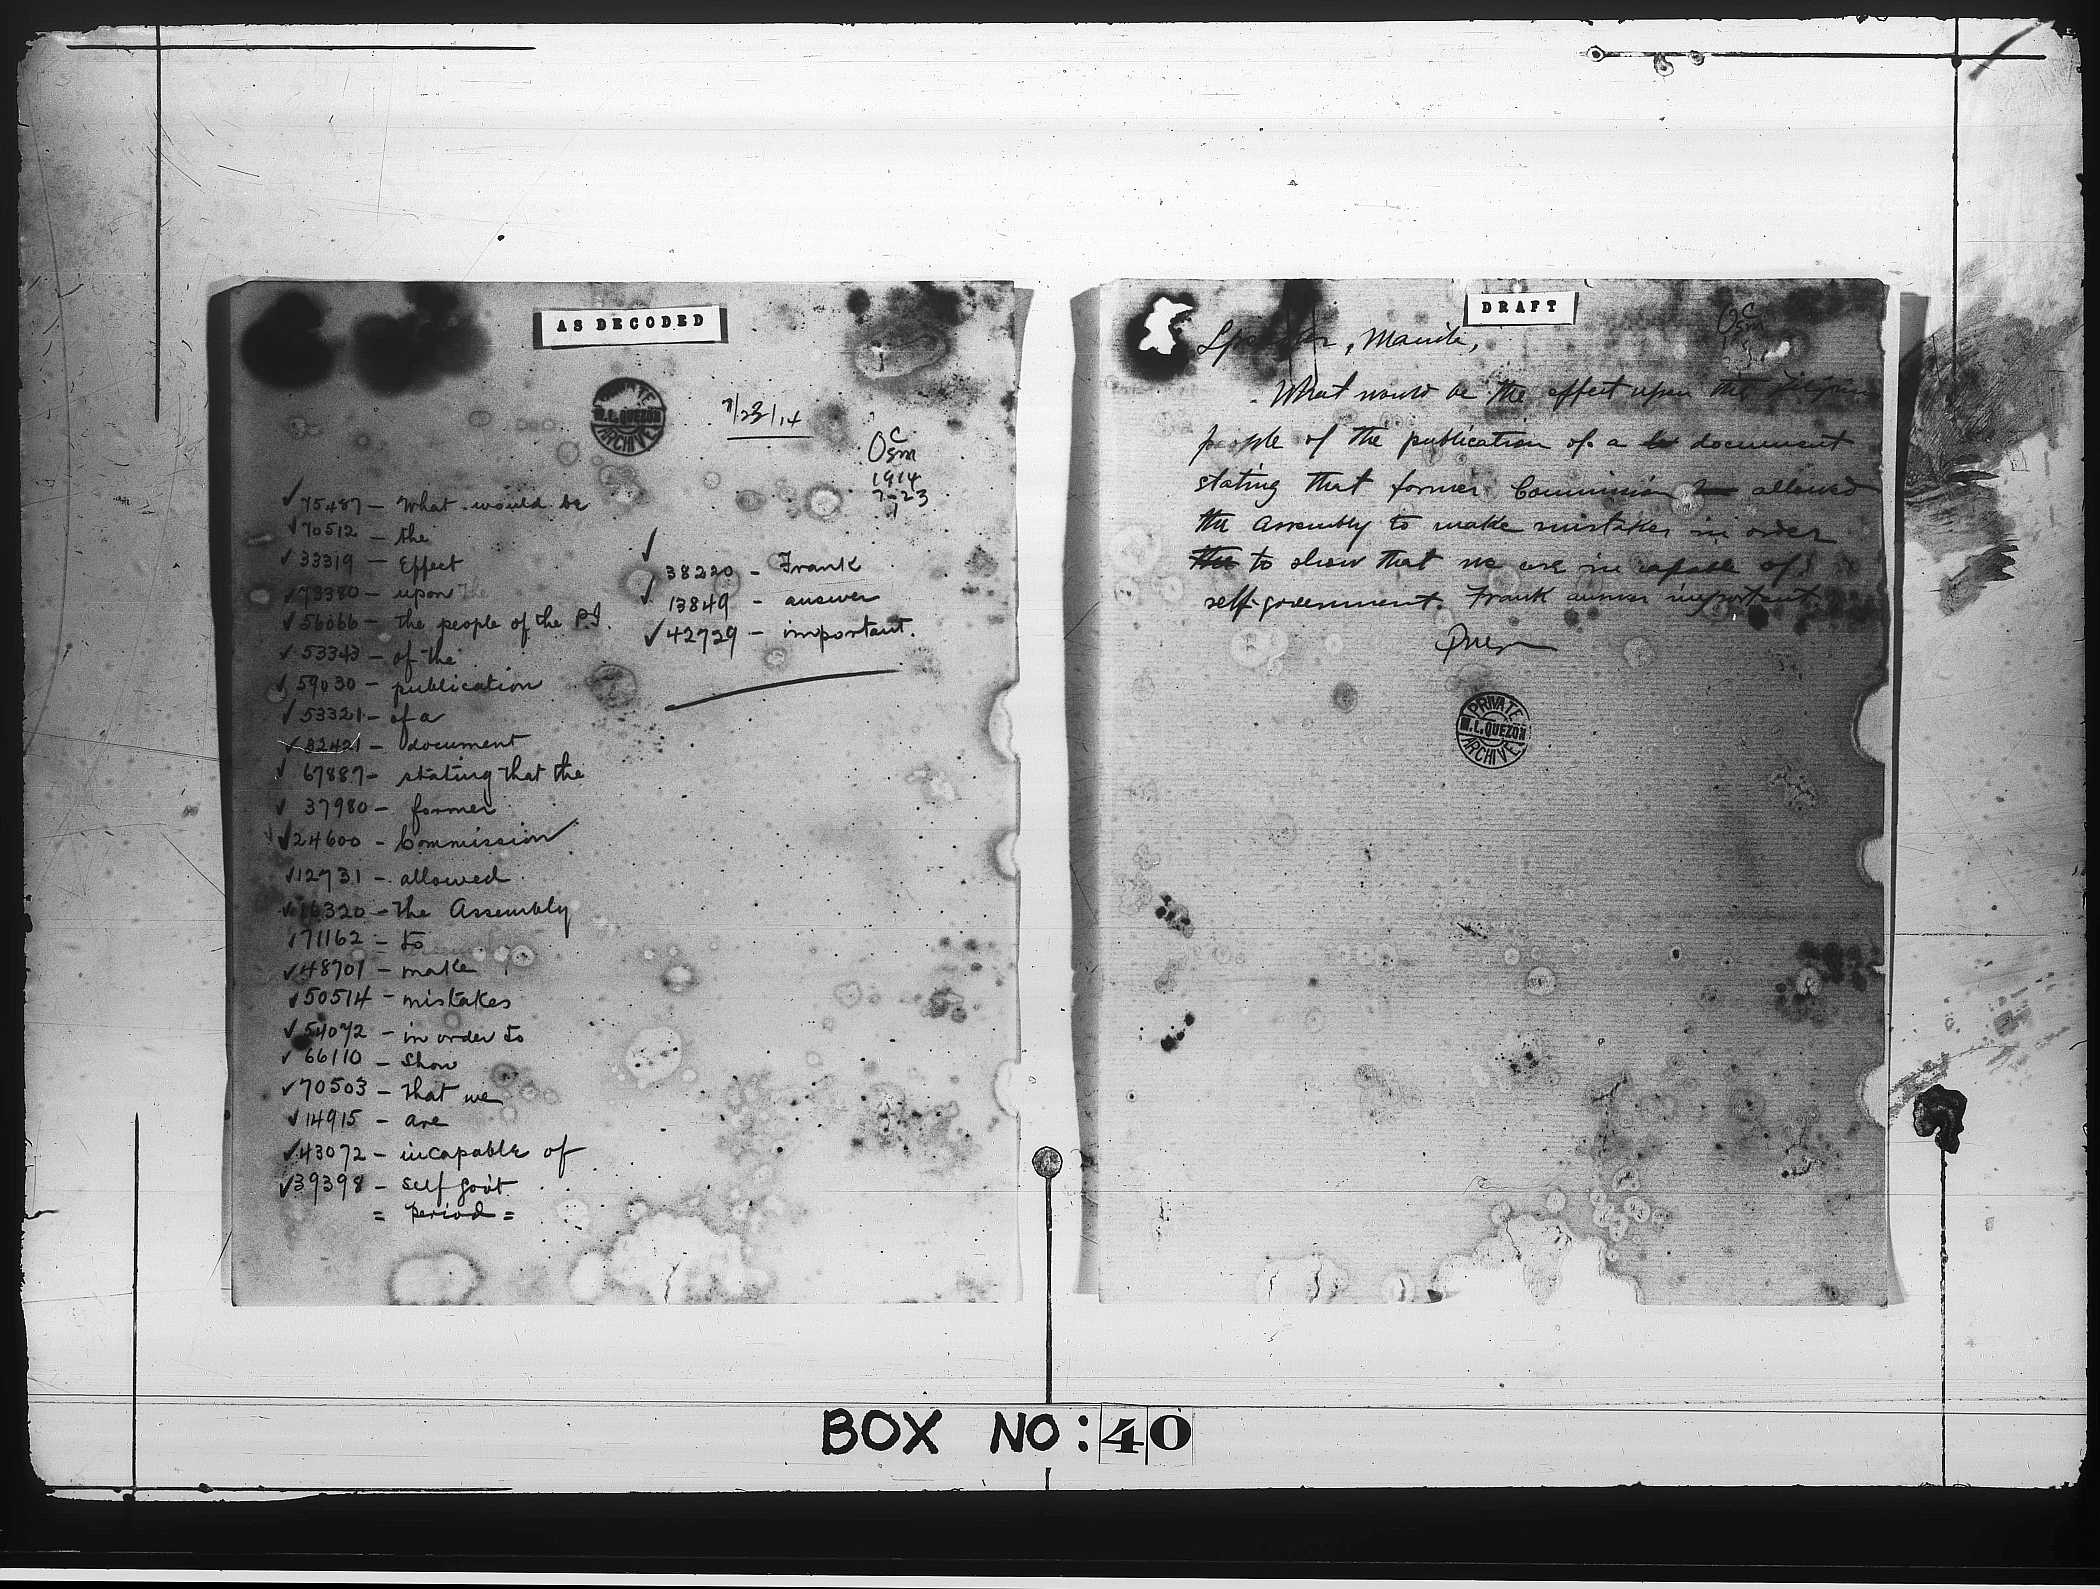 AS DECODED
PRIVATE
M.L. QUEZON
ARCHIVE
7/23/14
C
Osm
1914
7-23
1
✓ 75487 – What would be
✓ 70512 – the
✓ 33319 – Effect
✓ 73380 – upon the
✓ 56066 – the people of the P.I.
✓ 53343 – of the
✓ 59030 – publication
✓ 53321 – of a
✓ 32421 – document
✓ 67887 – stating that the
✓ 37980 – former
✓ 24600 – Commission
✓ 12731 – allowed
✓ 16320 – the Assembly
✓ 71162 – to
✓ 48701 – make
✓ 50514 – mistakes
✓ 54072 – in order to
✓ 66110 – show
✓ 70503 – that we
✓ 14915 – are
✓ 43072 – incapable of
✓ 39398 – self gov't
= period =
✓ 38220 – Frank
✓ 13849 – answer
✓ 42729 – important.
DRAFT
C
Osm
Speaker, Manila,
What would be the effect upon the Filipino
people of the publication of a document
stating that former Commission allowed
the Assembly to make mistakes in order
the to show that we are incapable of
self-government. Frank answer important
Quezon
PRIVATE
M.L. QUEZON
ARCHIVE
BOX NO: 40